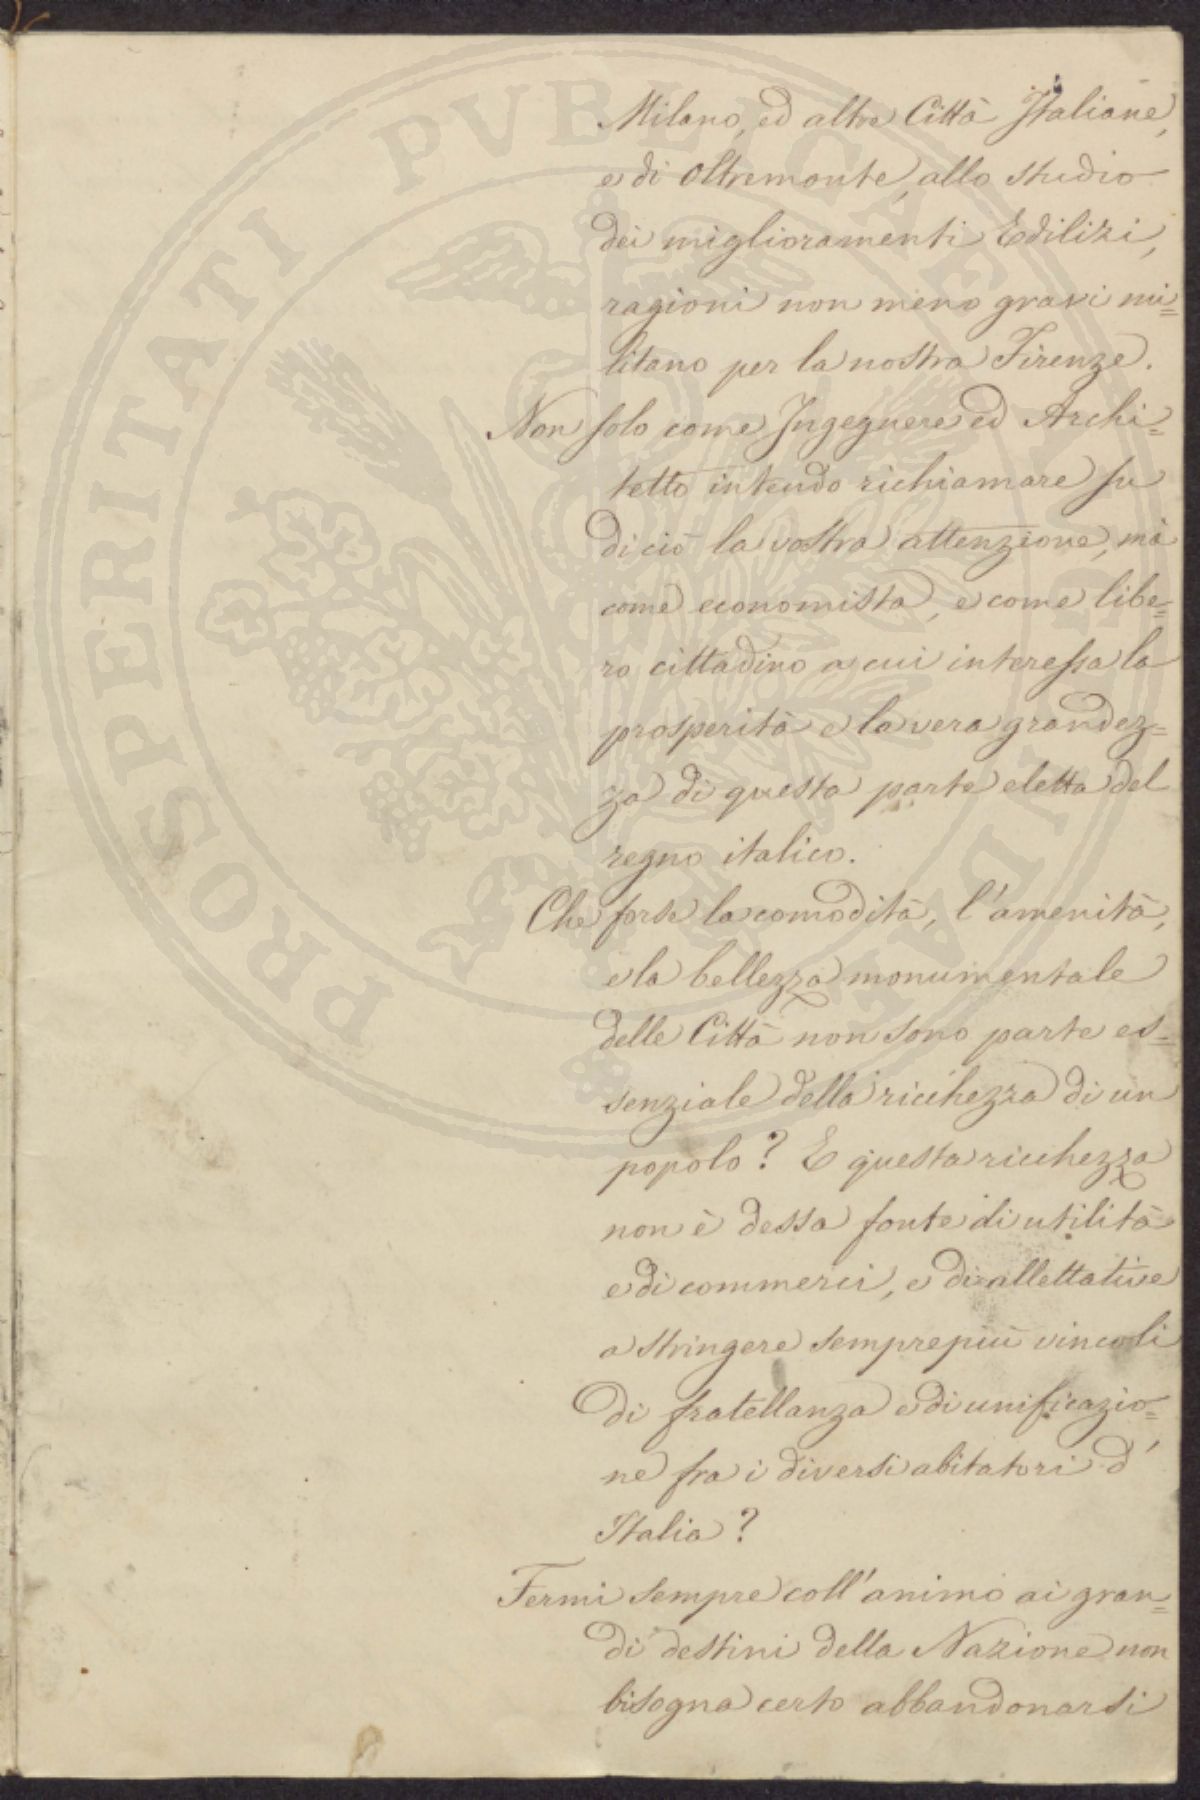 Milano, ed altre Città Italiane,
e di oltremonte, allo studio
dei miglioramenti Edilizi,
ragioni non meno gravi mi=
litano per la nostra Firenze.
Non solo come Ingegnere ed Archi=
tetto intendo richiamare su
di ciò la vostra attenzione, mà
come economista, e come libe=
ro cittadino a cui interessa la
prosperità e la vera grandez=
za di questa parte eletta del
regno italico.
Che forse la comodità, l'amenità,
e la bellezza monumentale
delle Città non sono parte es=
senziale della ricchezza di un
popolo? E questa ricchezza
non è dessa fonte di utilità
e di commerci, e di allettative
a stringere semprepiù vincoli
di fratellanza e di unificazio=
ne fra i diversi abitatori d'
Italia?
Fermi sempre coll'animo ai gran=
di destini della Nazione non
bisogna certo abbandonarsi
PROSPERITATI PVBLICAE AVGENDAE